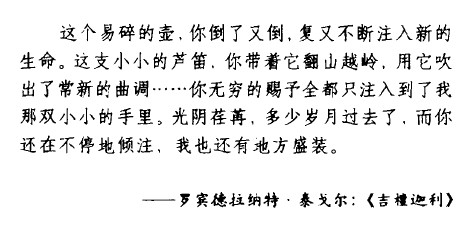 这个易碎的壶，你倒了又倒，复又不断注入新的
生命。这支小小的芦笛，你带着它翻山越岭，用它吹
出了常新的曲调……你无穷的赐予全都只注入到了我
那双小小的手里。光阴荏苒，多少岁月过去了，而你
还在不停地倾注，我也还有地方盛装。
——罗宾德拉纳特·泰戈尔：《吉檀迦利》